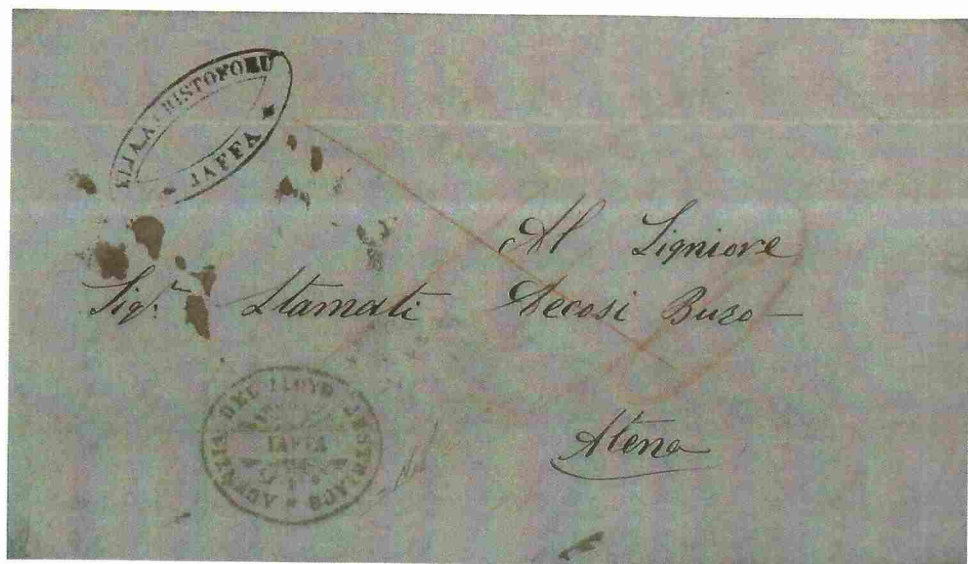 ELIA A. CRISTOFORU
* JAFFA *
Al Signiore
Sigr. Stamati Decosi Buzo —
Atene
AGENZIA DEL LLOYD AUSTRIACO
JAFFA